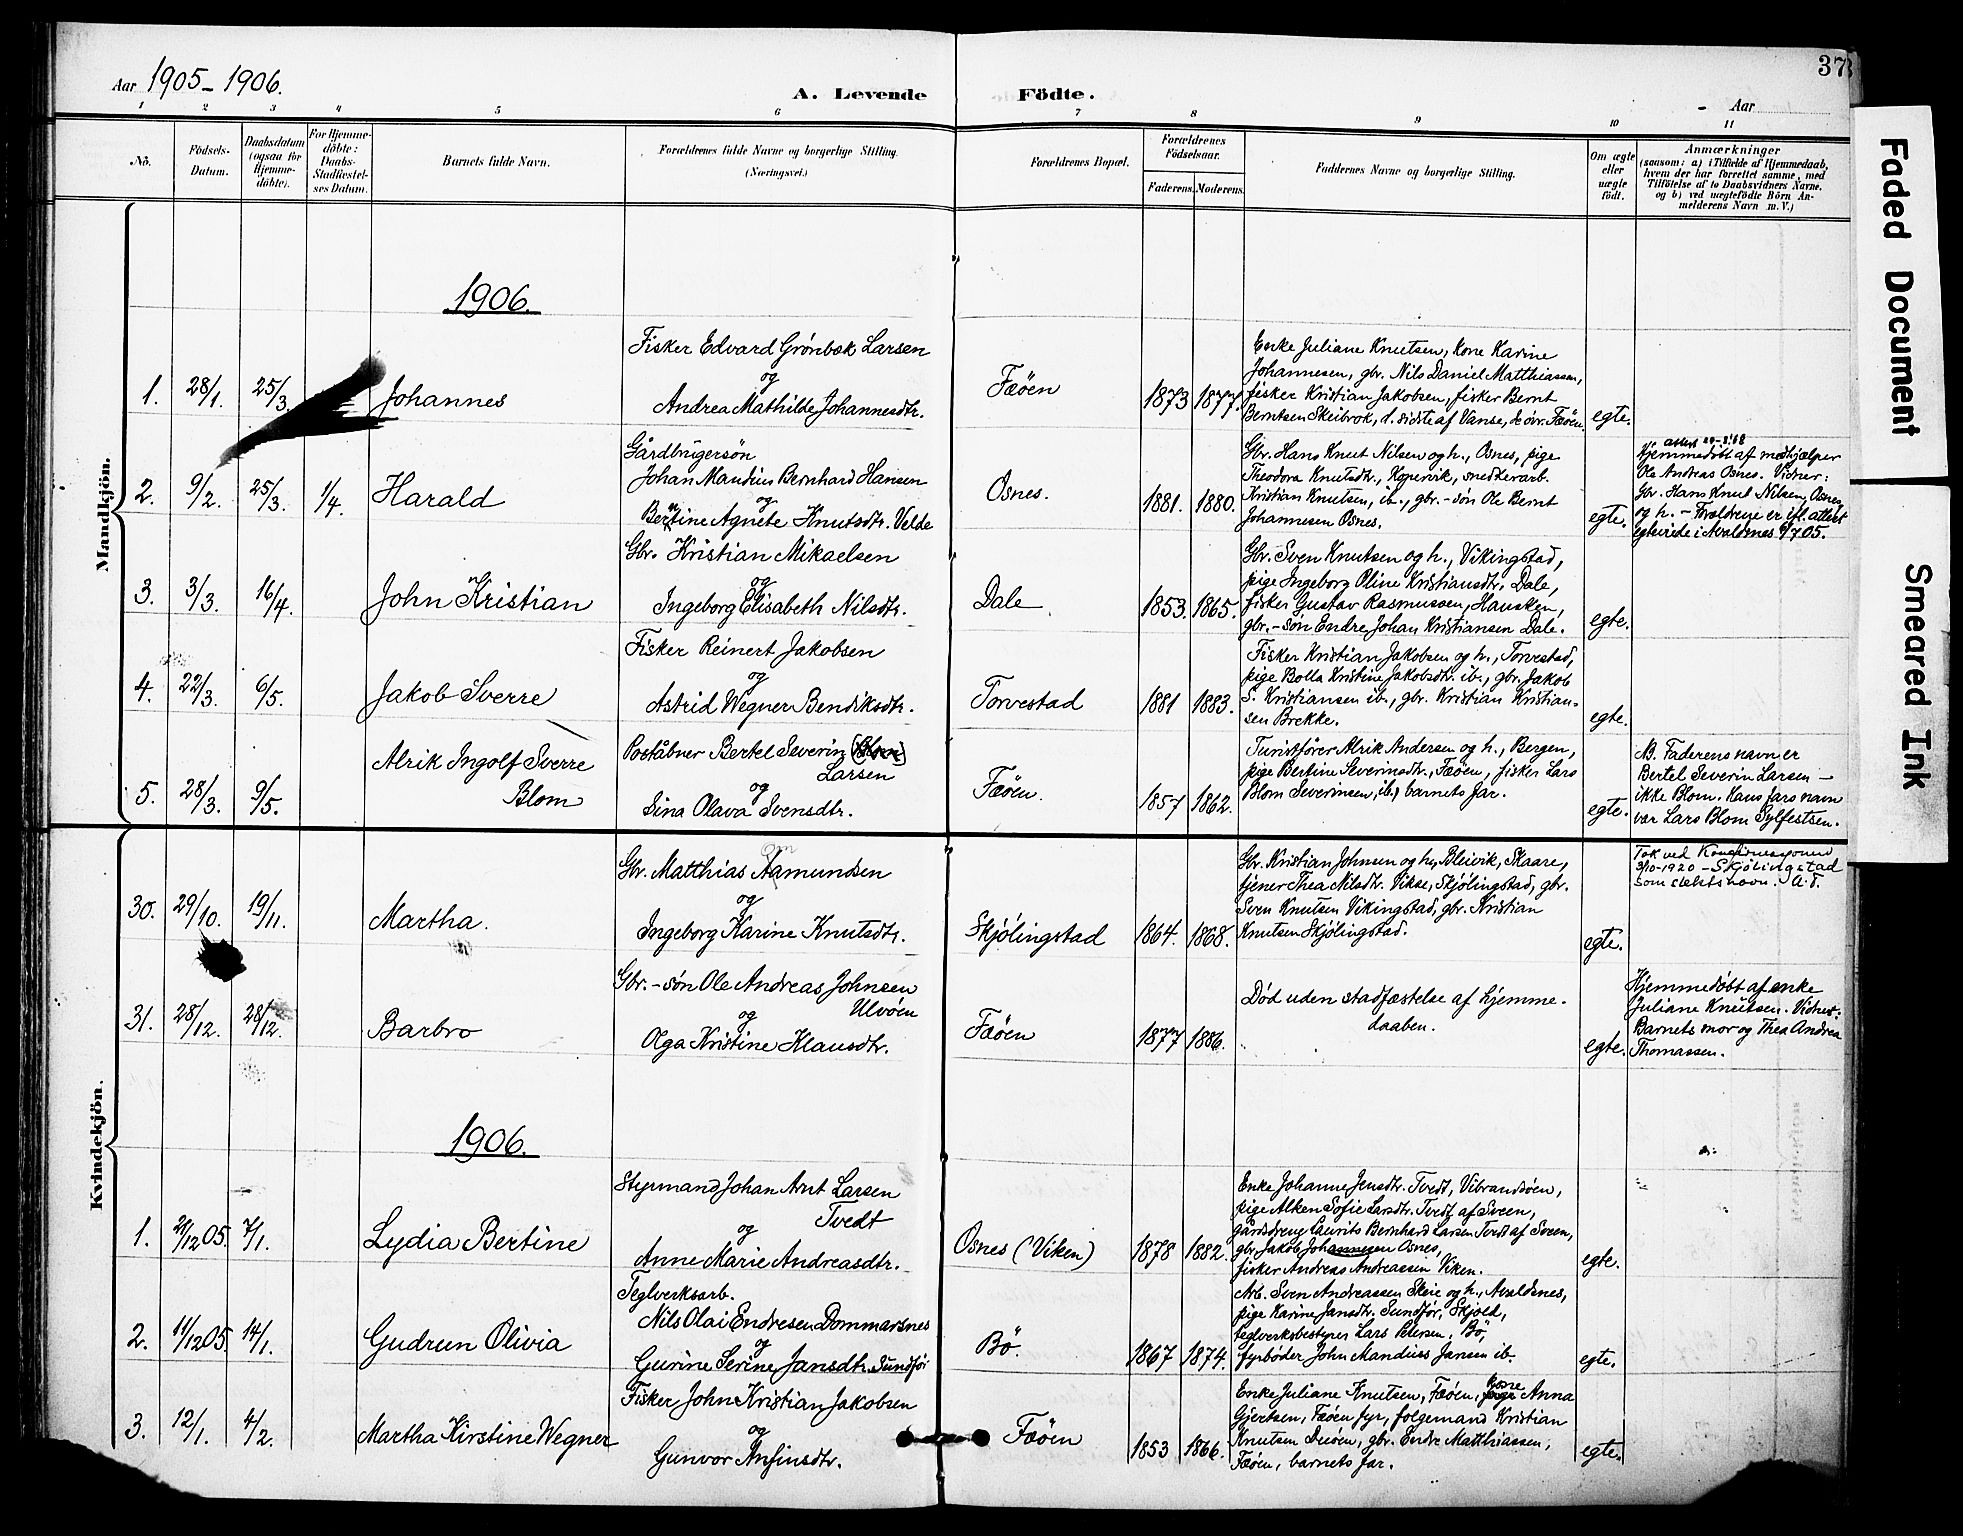 Aar 1905-1906.
A. Levende Födte.
37
Aar
1 2 3 4 5 6 7 8 9 10 11
No.
Födsels-
Datum.
Daabsdatum
(ogsaa for
Hjemme-
döbte).
For Hjemme-
döbte:
Daabs-
Stadfæstel-
ses Datum.
Barnets fulde Navn.
Forældrenes fulde Navne og borgerlige Stilling.
(Næringsvei.)
Forældrenes Bopæl.
Forældrenes
Födselsaar.
Faderens. Moderens.
Faddernes Navne og borgerlige Stilling.
Om ægte
eller
uægte
födt.
Anmærkninger
(saasom: a) i Tilfælde af Hjemmedaab,
hvem der har forrettet samme, med
Tilföielse af to Daabsvidners Navne,
og b) ved uægtefödte Börn An-
melderens Navn m. V.)
Mandkjön.
1906.
1. 28/1. 25/3. Johannes
Fisker Edvard Grönbæk Larsen
og
Andrea Mathilde Johannesdtr.
Fæöen
1873 1877.
Enke Juliane Knutsen, Kone Karine
Johannesen, gbr. Nils Daniel Matthiassen,
fisker Kristian Jakobsen, fisker Bernt
Berntsen Skeibrok, d. sidste af Vanse, de övr. Fæöen.
egte.
2. 9/2. 25/3. 1/4. Harald
Gårdbrugersön
Johan Mandius Bernhard Hansen
og
Berntine Agnete Knutsdtr. Velde
Osnes.
1881. 1880.
Gbr. Hans Knut Nilsen og h., Osnes, pige
Theodora Knutsdtr., Kopervik, snedkerarb.
Kristian Knutsen, ib., gbr.-sön Ole Bernt
Johannesen Osnes.
egte.
Hjemmedöbt af medhjælper
Ole Andreas Osnes. Vidner:
Gbr. Hans Knut Nilsen, Osnes,
og h. - Forældrene er ifl. attest
egteviede i Avaldsnes 9/7 05.
3. 3/3. 16/4. John Kristian
Gbr. Kristian Mikaelsen
og
Ingeborg Elisabeth Nilsdtr.
Dale.
1853. 1865.
Gbr. Sven Knutsen og h., Vikingstad,
pige Ingeborg Oline Kristiansdtr. Dale,
fisker Gustav Rasmussen, Hausken,
gbr.-sön Endre Johan Kristiansen Dale.
egte.
4. 22/3. 6/5. Jakob Sverre
Fisker Reinert Jakobsen
og
Astrid Wegner Bendiksdtr.
Torvestad
1881 1883.
Fisker Kristian Jakobsen og h., Torvestad,
pige Bolla Kristine Jakobsdtr. ib., gbr. Jakob
S. Kristiansen ib., gbr. Kristian Kristian-
sen Brekke.
egte.
5. 28/3. 9/5.
Alrik Ingolf Sverre
Blom
Poståbner Bertel Severin (Blom)
Larsen
og
Sina Olava Svensdtr.
Fæöen.
1857 1862.
Turistförer Alrik Andersen og h., Bergen,
pige Bertine Severinsdtr., Fæöen, fisker Lars
Blom Severinsen, ib., barnets far.
egte.
NB. Faderens navn er
Bertel Severin Larsen -
ikke Blom. Hans fars navn
var Lars Blom Sylfestsen.
Kvindekjön.
30. 29/10. 19/11. Martha.
Gbr. Matthias Aamundsen
og
Ingeborg Karine Knutsdtr.
Skjölingstad
1864. 1868.
Gbr. Kristian Johnsen og h., Bleivik, Skaare,
tjener Thea Nilsdtr. Vikse, Skjölingstad, gbr.
Sven Knutsen Vikingstad, gbr. Kristian
Knutsen Skjölingstad.
egte.
Tok ved Konfirmasjonen
3/10-1920 - Skjölingstad
som slektsnavn. A.T.
31. 28/12. 28/12. Barbro
Gbr.-sön Ole Andreas Johnsen
Ulvöen
og
Olga Kristine Klausdtr.
Fæöen
1877 1886.
Död uden stadfæstelse af hjemme-
daaben.
egte.
Hjemmedöbt af enke
Juliane Knutsen. Vidner:
Barnets mor og Thea Andrea
Thomassen.
1906.
1. 29/12 05. 7/1. Lydia Bertine
Styrmand Johan Arnt Larsen
Tvedt
og
Anne Marie Andreasdtr.
Osnes (Viken)
1878 1882.
Enke Johanne Jensdtr. Tvedt, Vibrandsöen,
pige Alken Sofie Larsdtr. Tvedt af Sveen,
gårdsdreng Laurits Bernhard Larsen Tvedt af Sveen,
gbr. Jakob Johannesen Osnes,
fisker Andreas Andreassen Viken.
egte.
2. 11/12 05. 14/1. Gudrun Olivia
Teglverksarb.
Nils Olai Endresen Dommarsnes
og
Gurine Serine Jansdtr. Sundför
Bö.
1867 1874.
Arb. Sven Andreassen Skeie og h., Avaldsnes,
pige Karine Jansdtr. Sundför, Skjold,
teglverksbestyrer Lars Petersen, Bö,
fyrböder John Mandius Jansen ib.
egte.
3. 12/1. 4/2. Martha Kirstine Wegner
Fisker John Kristian Jakobsen
og
Gunvor Anfinsdtr.
Fæöen
1853 1866.
Enke Juliane Knutsen, Fæöen, kone Anna
Gjertsen, Fæöen fyr, folgemand Kristian
Knutsen Duöen, gbr. Endre Matthiassen,
Fæöen, barnets far.
egte.
Faded Document
Smeared Ink